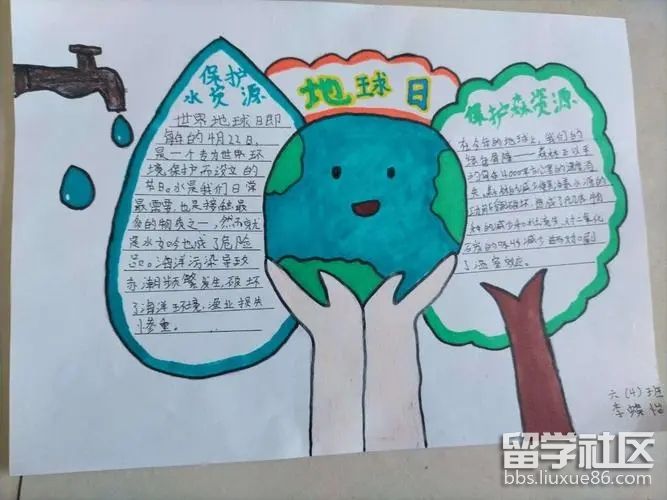 地球日
保护
水资源
世界地球日即
每年的4月22日。
是一个专为世界环
境保护而设立的
节日。水是我们日常
最需要,也是接触最
多的物质之一,然而就
是水如今也成了危险
品。海洋污染导致
赤潮频繁发生,破坏
了海洋环境,渔业损失
惨重。
保护森资源
在今日的地球上,我们的
绿色屏障——森林正以平
均每年4000平方公里的速度消
失,森林的减少使涵养水源的
功能
了温室效应。
六(4)班
留学社区
bbs.liuxue86.com